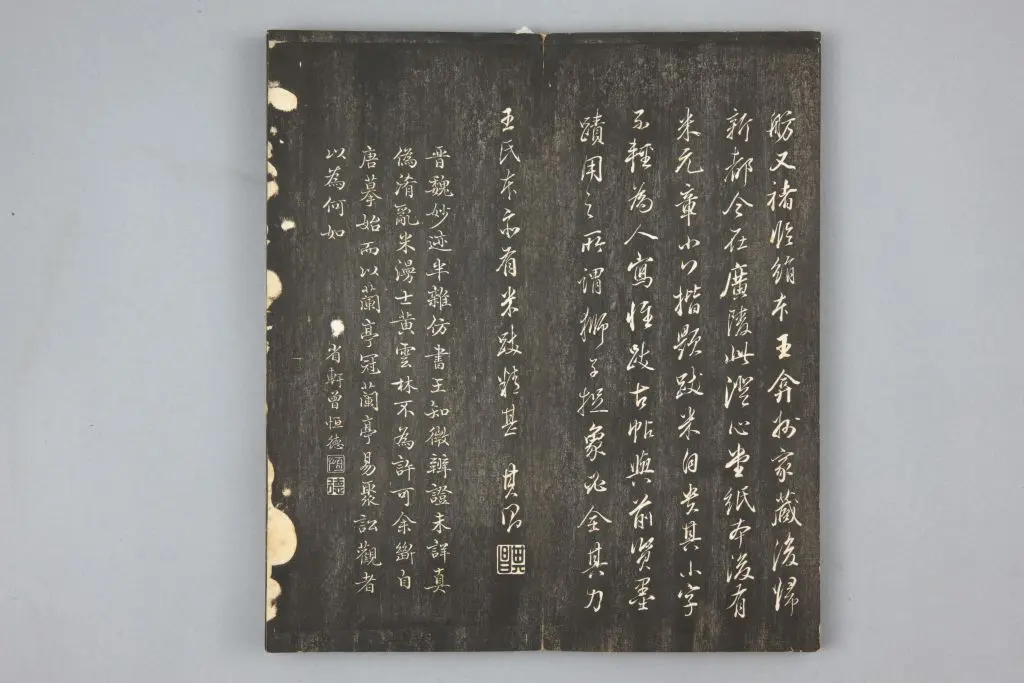 舫又褚临绢本王弇州家藏後歸
新都今在廣陵此澄心堂紙本後有
米元章小小楷題跋米自貴其小字
不輕為人寫惟跋古帖與前賢墨
蹟用之所謂獅子捉象必全其力
王氏本亦有米跋精甚 其昌
其昌
晋魏妙迹半雜仿書王知微辨證未詳真
偽淆亂米漫士黄雲林不為許可余斷自
唐摹始而以蘭亭冠蘭亭易聚訟觀者
以為何如
省軒曾恒德
恒德